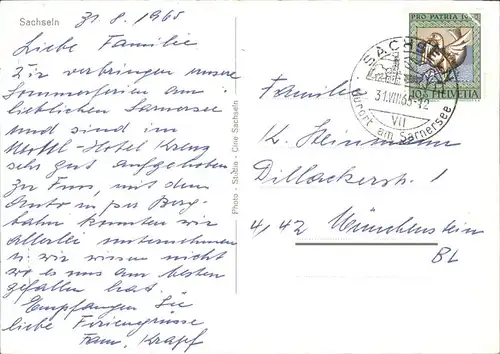 Sachseln
31.8.1965
Liebe Familie
Wir verbringen unsere
Sommerferien am
lieblichen Sarnersee
und sind im
Hotel Kreuz
sehr gut aufgehoben
zu Fuss, mit dem
Auto u. per Berg-
bahn konnten wir
allerlei unternehmen
u. wir wissen nicht
wo es uns am besten
gefallen hat.
Empfangen Sie
liebe Feriengrüsse
Fam. Krapf
Photo - Studio - Cine Sachseln
PRO PATRIA
HELVETIA
SACHSELN
31.VIII.65-12
VII
Kurort am Sarnersee
Familie
K. Heinmann
Dillackerstr. 1
4142 Münchenstein
BL